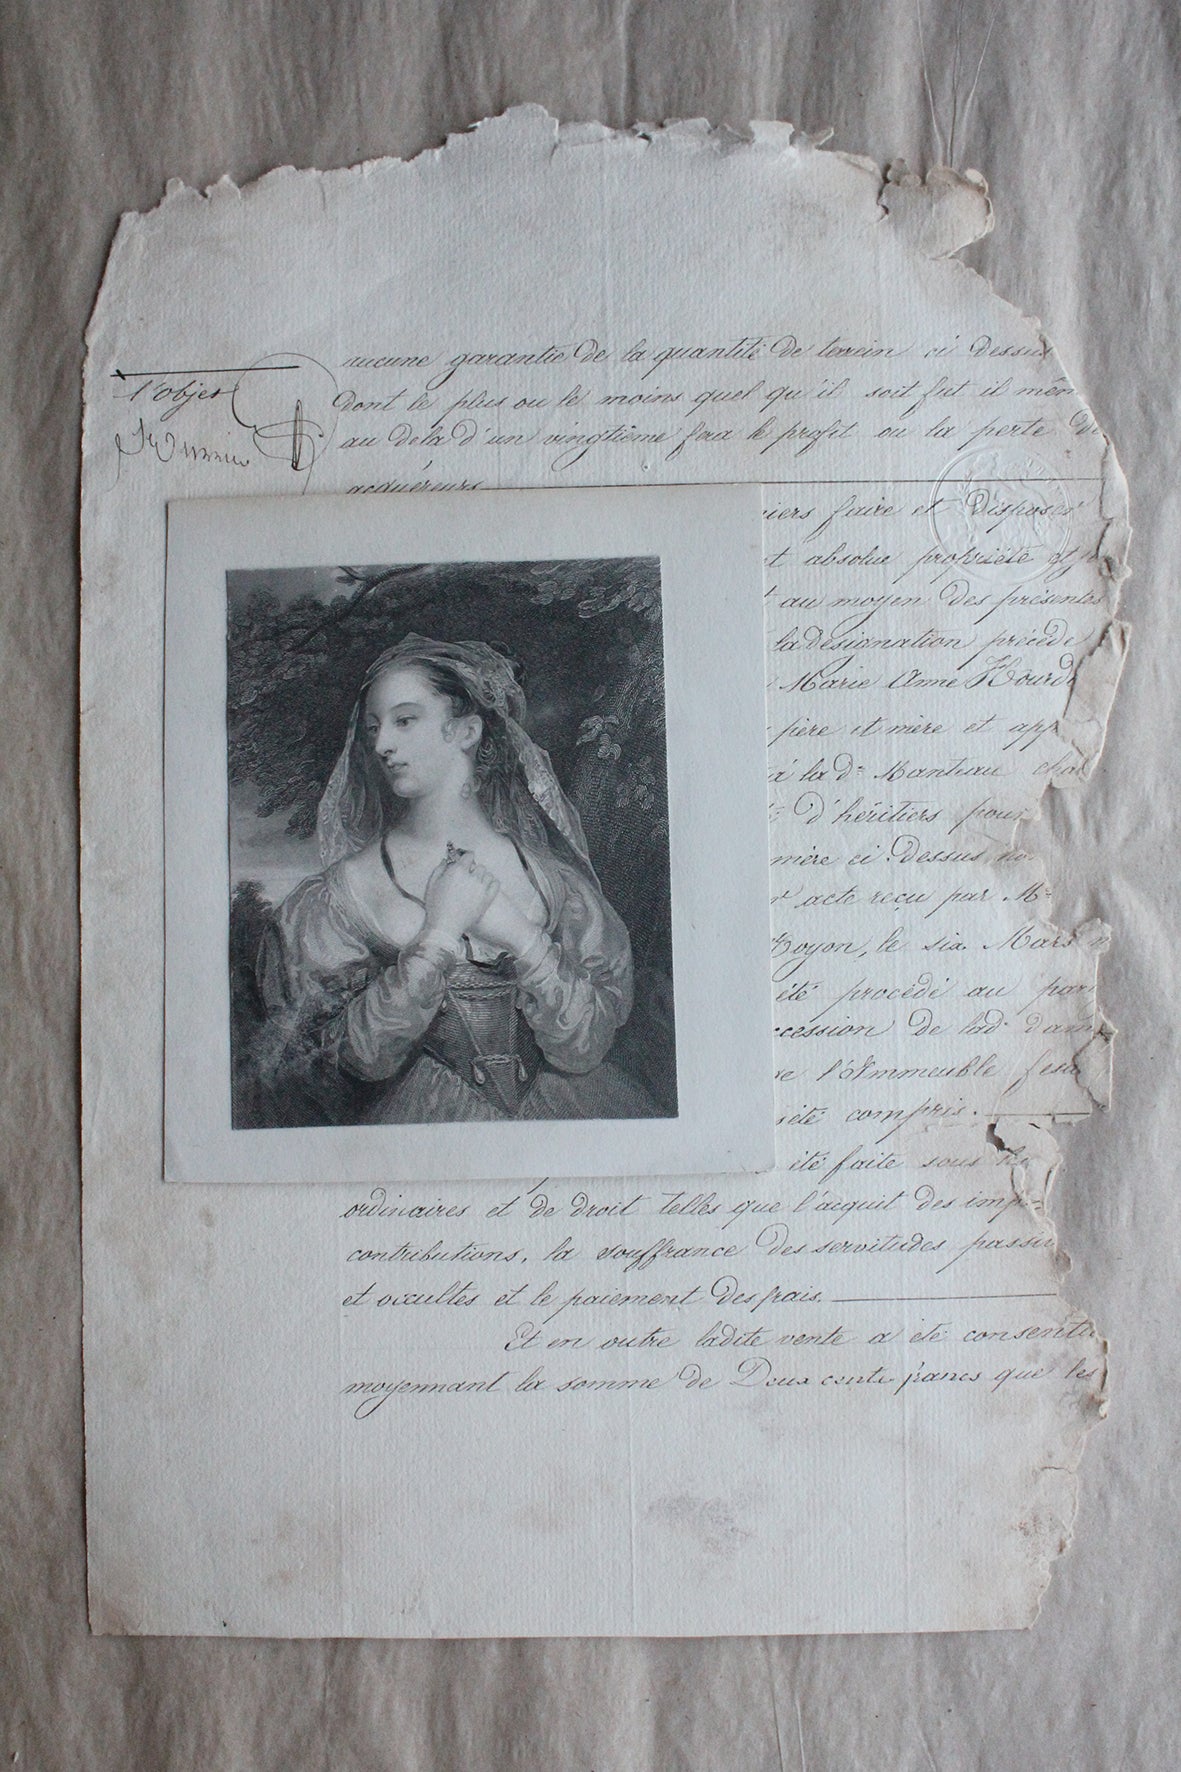 l'objet
aucune garantie de la quantité de terrein ci dessus
dont le plus ou le moins quel qu'il soit fut il mêm
au dela d'un vingtième fera le profit ou la perte de
acquéreurs
iers faire et disposer
t absolue propriété et
au moyen des présentes
la désignation précède
Marie Anne Hourd
père et mère et app
à la de Manteau
d'héritiers pour
mère ci-dessus no
acte reçu par Me
Noyon, le six Mars
été procédé au par
ccession de lad. dam
re l'Immeuble
iété compris.
été faite sous les
ordinaires et de droit telles que l'acquit des imp
contributions, la souffrance des servitudes passiv
et occultes et le paiement des frais.
Et en outre ladite vente a été consentie
moyennant la somme de Deux cents francs que les